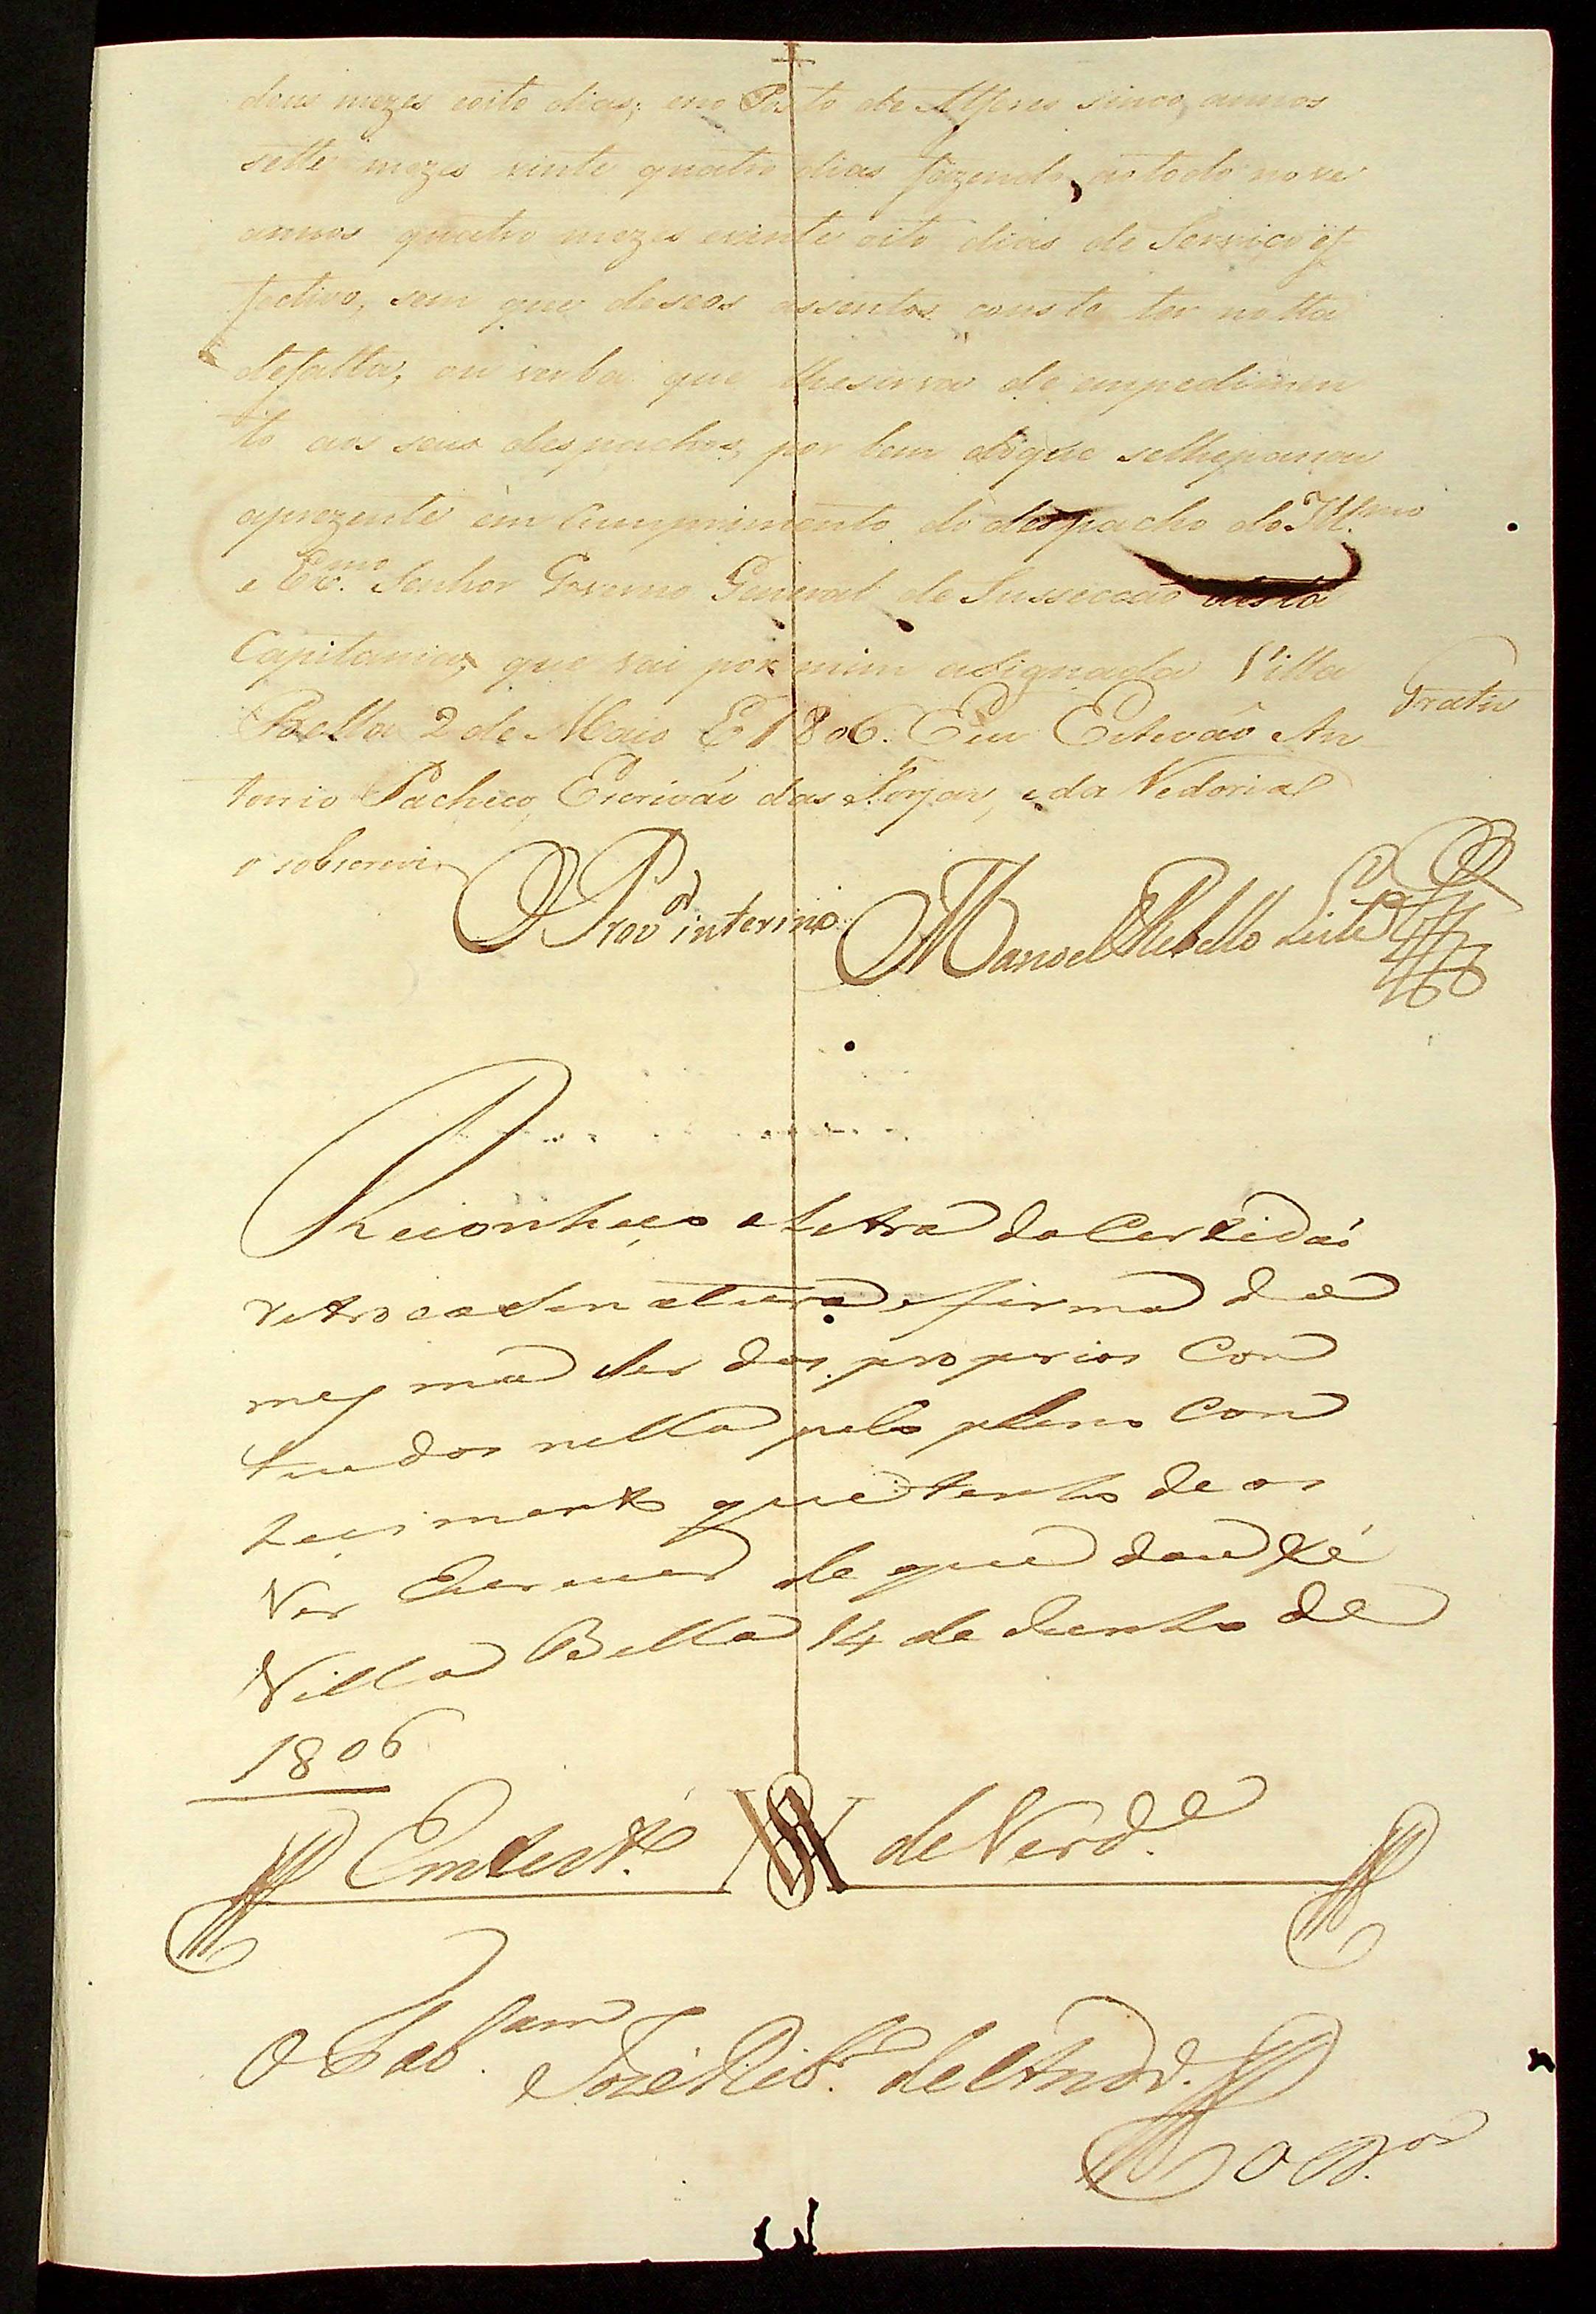 dous mezes eoito dias; eno Posto de Alferes sinco annos
sette mezes vinte quatro dias fazendo aotodo nove
annos quatro mezes evinte oito dias de Serviço ef
fectivo, sem que deseos assentos conste ter notta
defalta, ou verba que lhesirva de empedimen
to aos seus despachos, por bem doque selhepasou
aprezente em Cumprimento do despacho do Ill.mo
e Exc.mo Senhor Governo General de Sussecção desta
Capitania, que vai por mim asignada Villa
Bella 2 de Maio de 1806. Eu Estevão An
tonio Pacheco, Escrivão das Forjas, eda Vedoria
o sobscrevi
Gratis
O Prov.or interino Manoel Rebello Leite
Reconheço aLetra da Certidaõ
retro eaSinatura efirma da
mesma Ser dos proprios Con
tiudos nella pelo pleno Con
hecimento que tenho de os
Ver Escrever de que dou fé
Villa Bella 14 de Junho de
1806
Em test.o de Verd.e
O Tab.am Jozé Rib.ro de Andr.